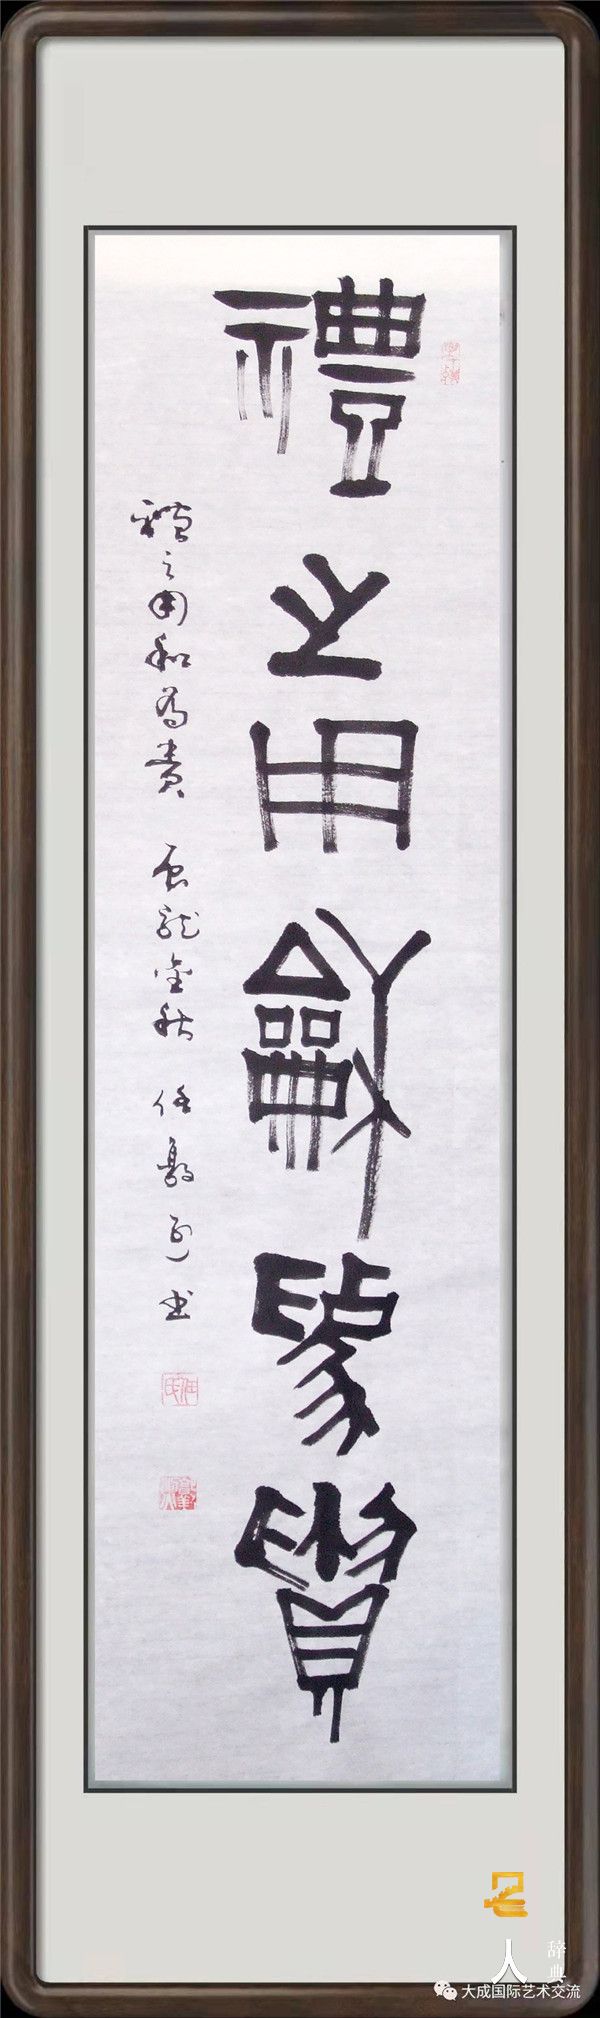 禮之用龢為貴
禮之用和為貴 辰龍金秋 任敦 書
名
人
辞典
大成国际艺术交流